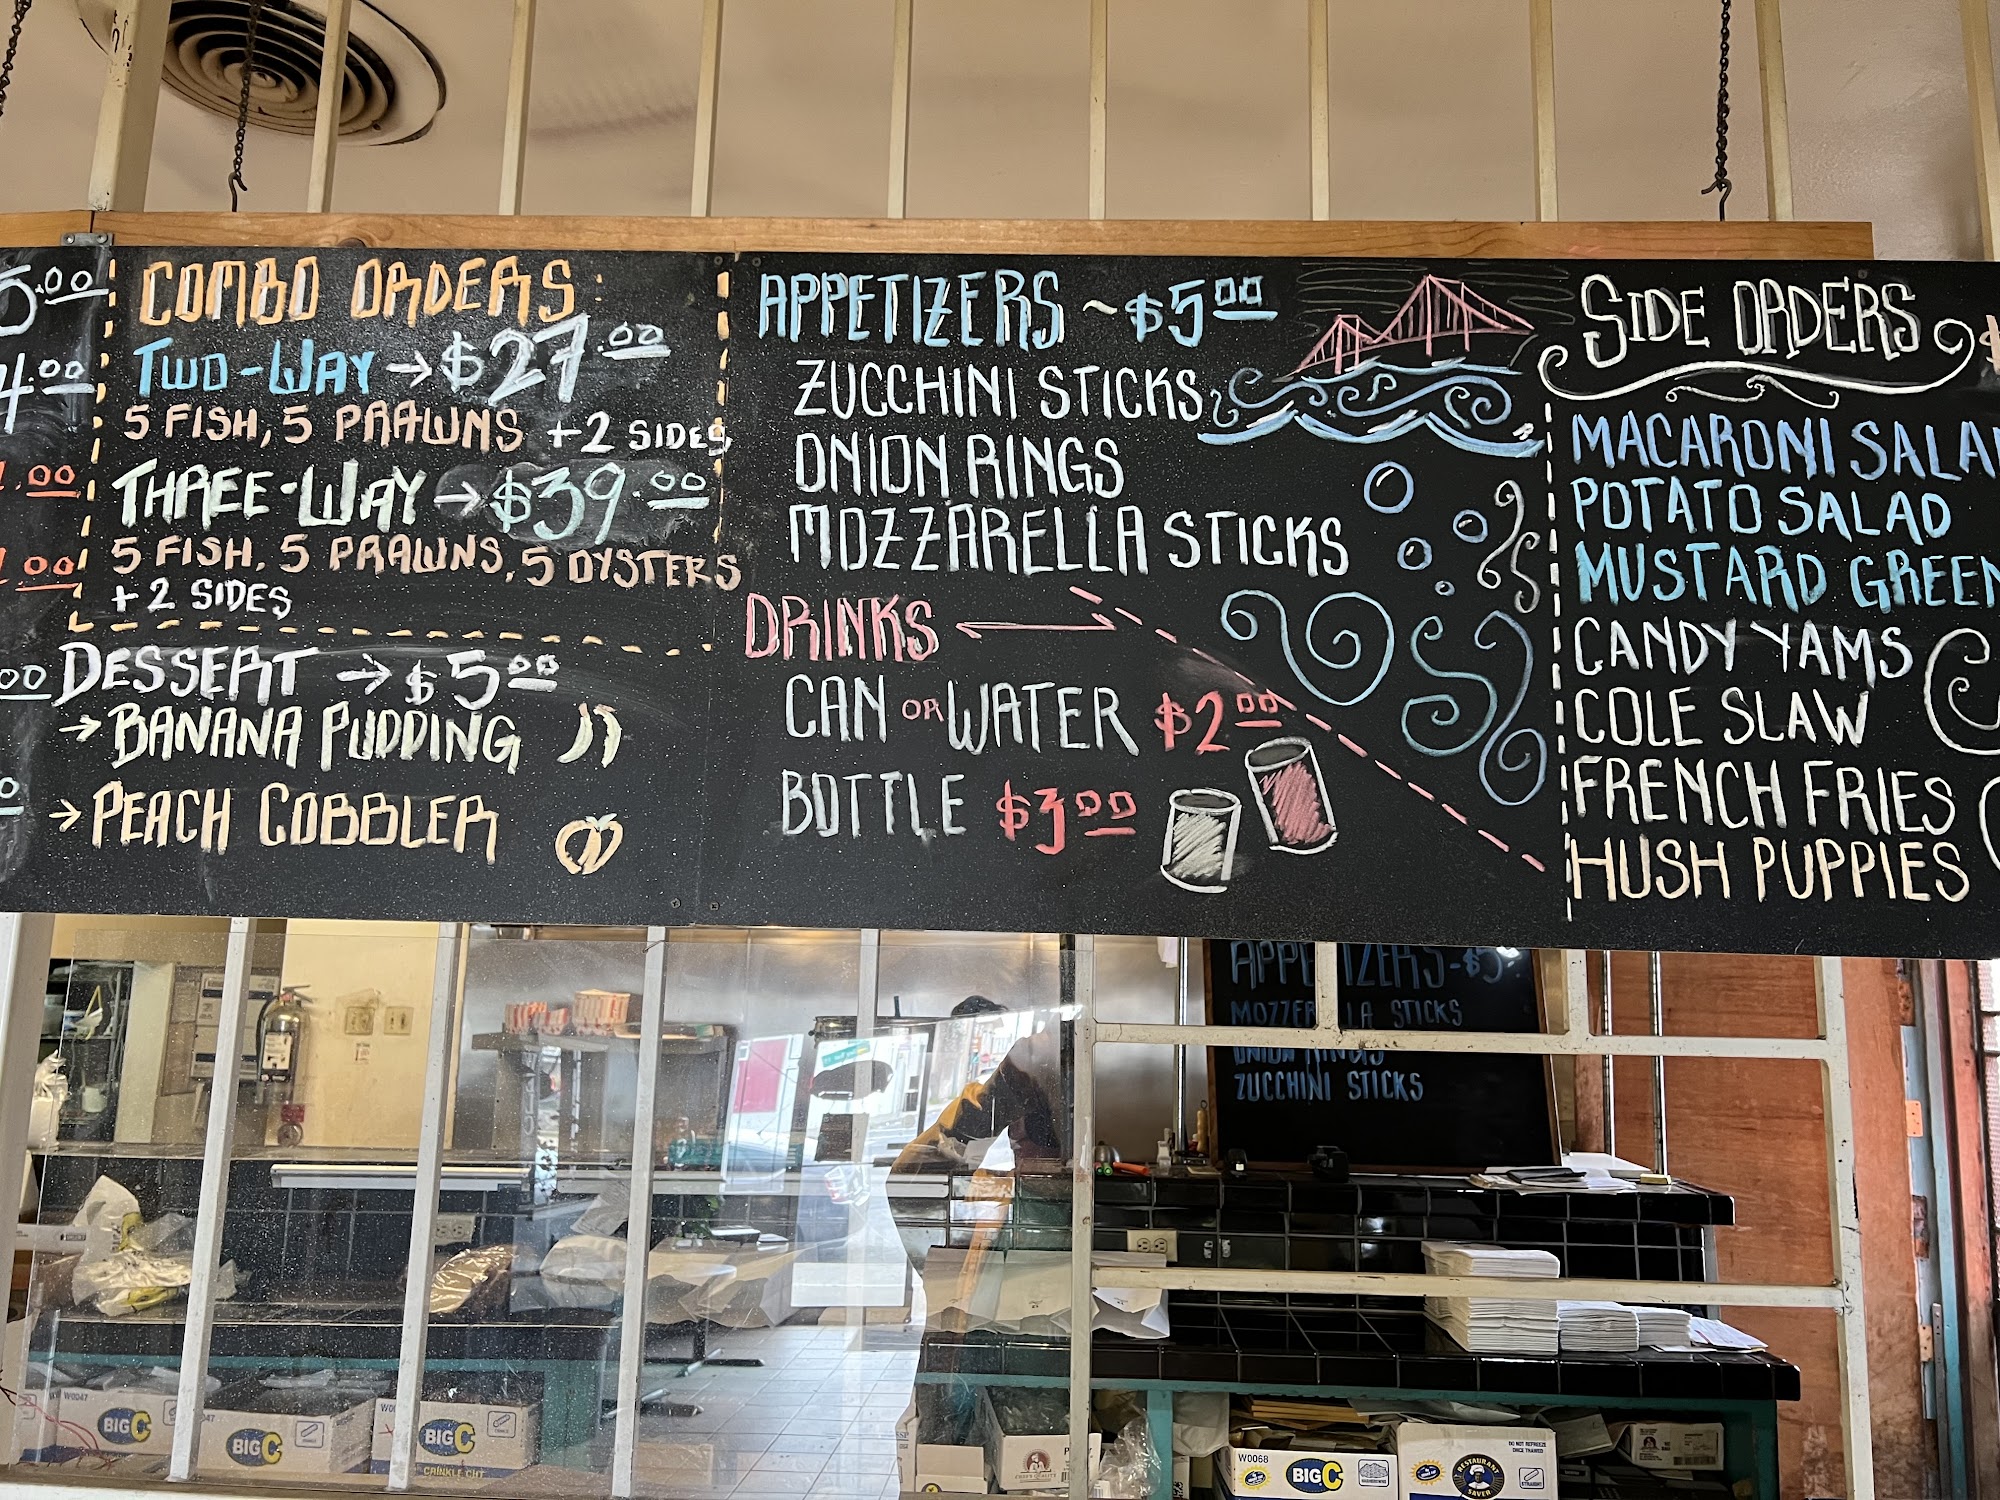 COMBO ORDERS:
TWO-WAY → $27.00
5 FISH, 5 PRAWNS +2 SIDES
THREE-WAY → $39.00
5 FISH, 5 PRAWNS, 5 OYSTERS
+2 SIDES
DESSERT → $5.00
→ BANANA PUDDING
→ PEACH COBBLER
APPETIZERS ~ $5.00
ZUCCHINI STICKS
ONION RINGS
MOZZARELLA STICKS
DRINKS
CAN OR WATER $2.00
BOTTLE $3.00
SIDE ORDERS
MACARONI SALA
POTATO SALAD
MUSTARD GREEN
CANDY YAMS
COLE SLAW
FRENCH FRIES
HUSH PUPPIES
5.00
4.00
.00
.00
00
APPETIZERS-$5
MOZZERELLA STICKS
ONION RINGS
ZUCCHINI STICKS
W0047
BIG C
BIG C
BIG C
CRINKLE CUT
W0068
BIG C
RESTAURANT
SAVER